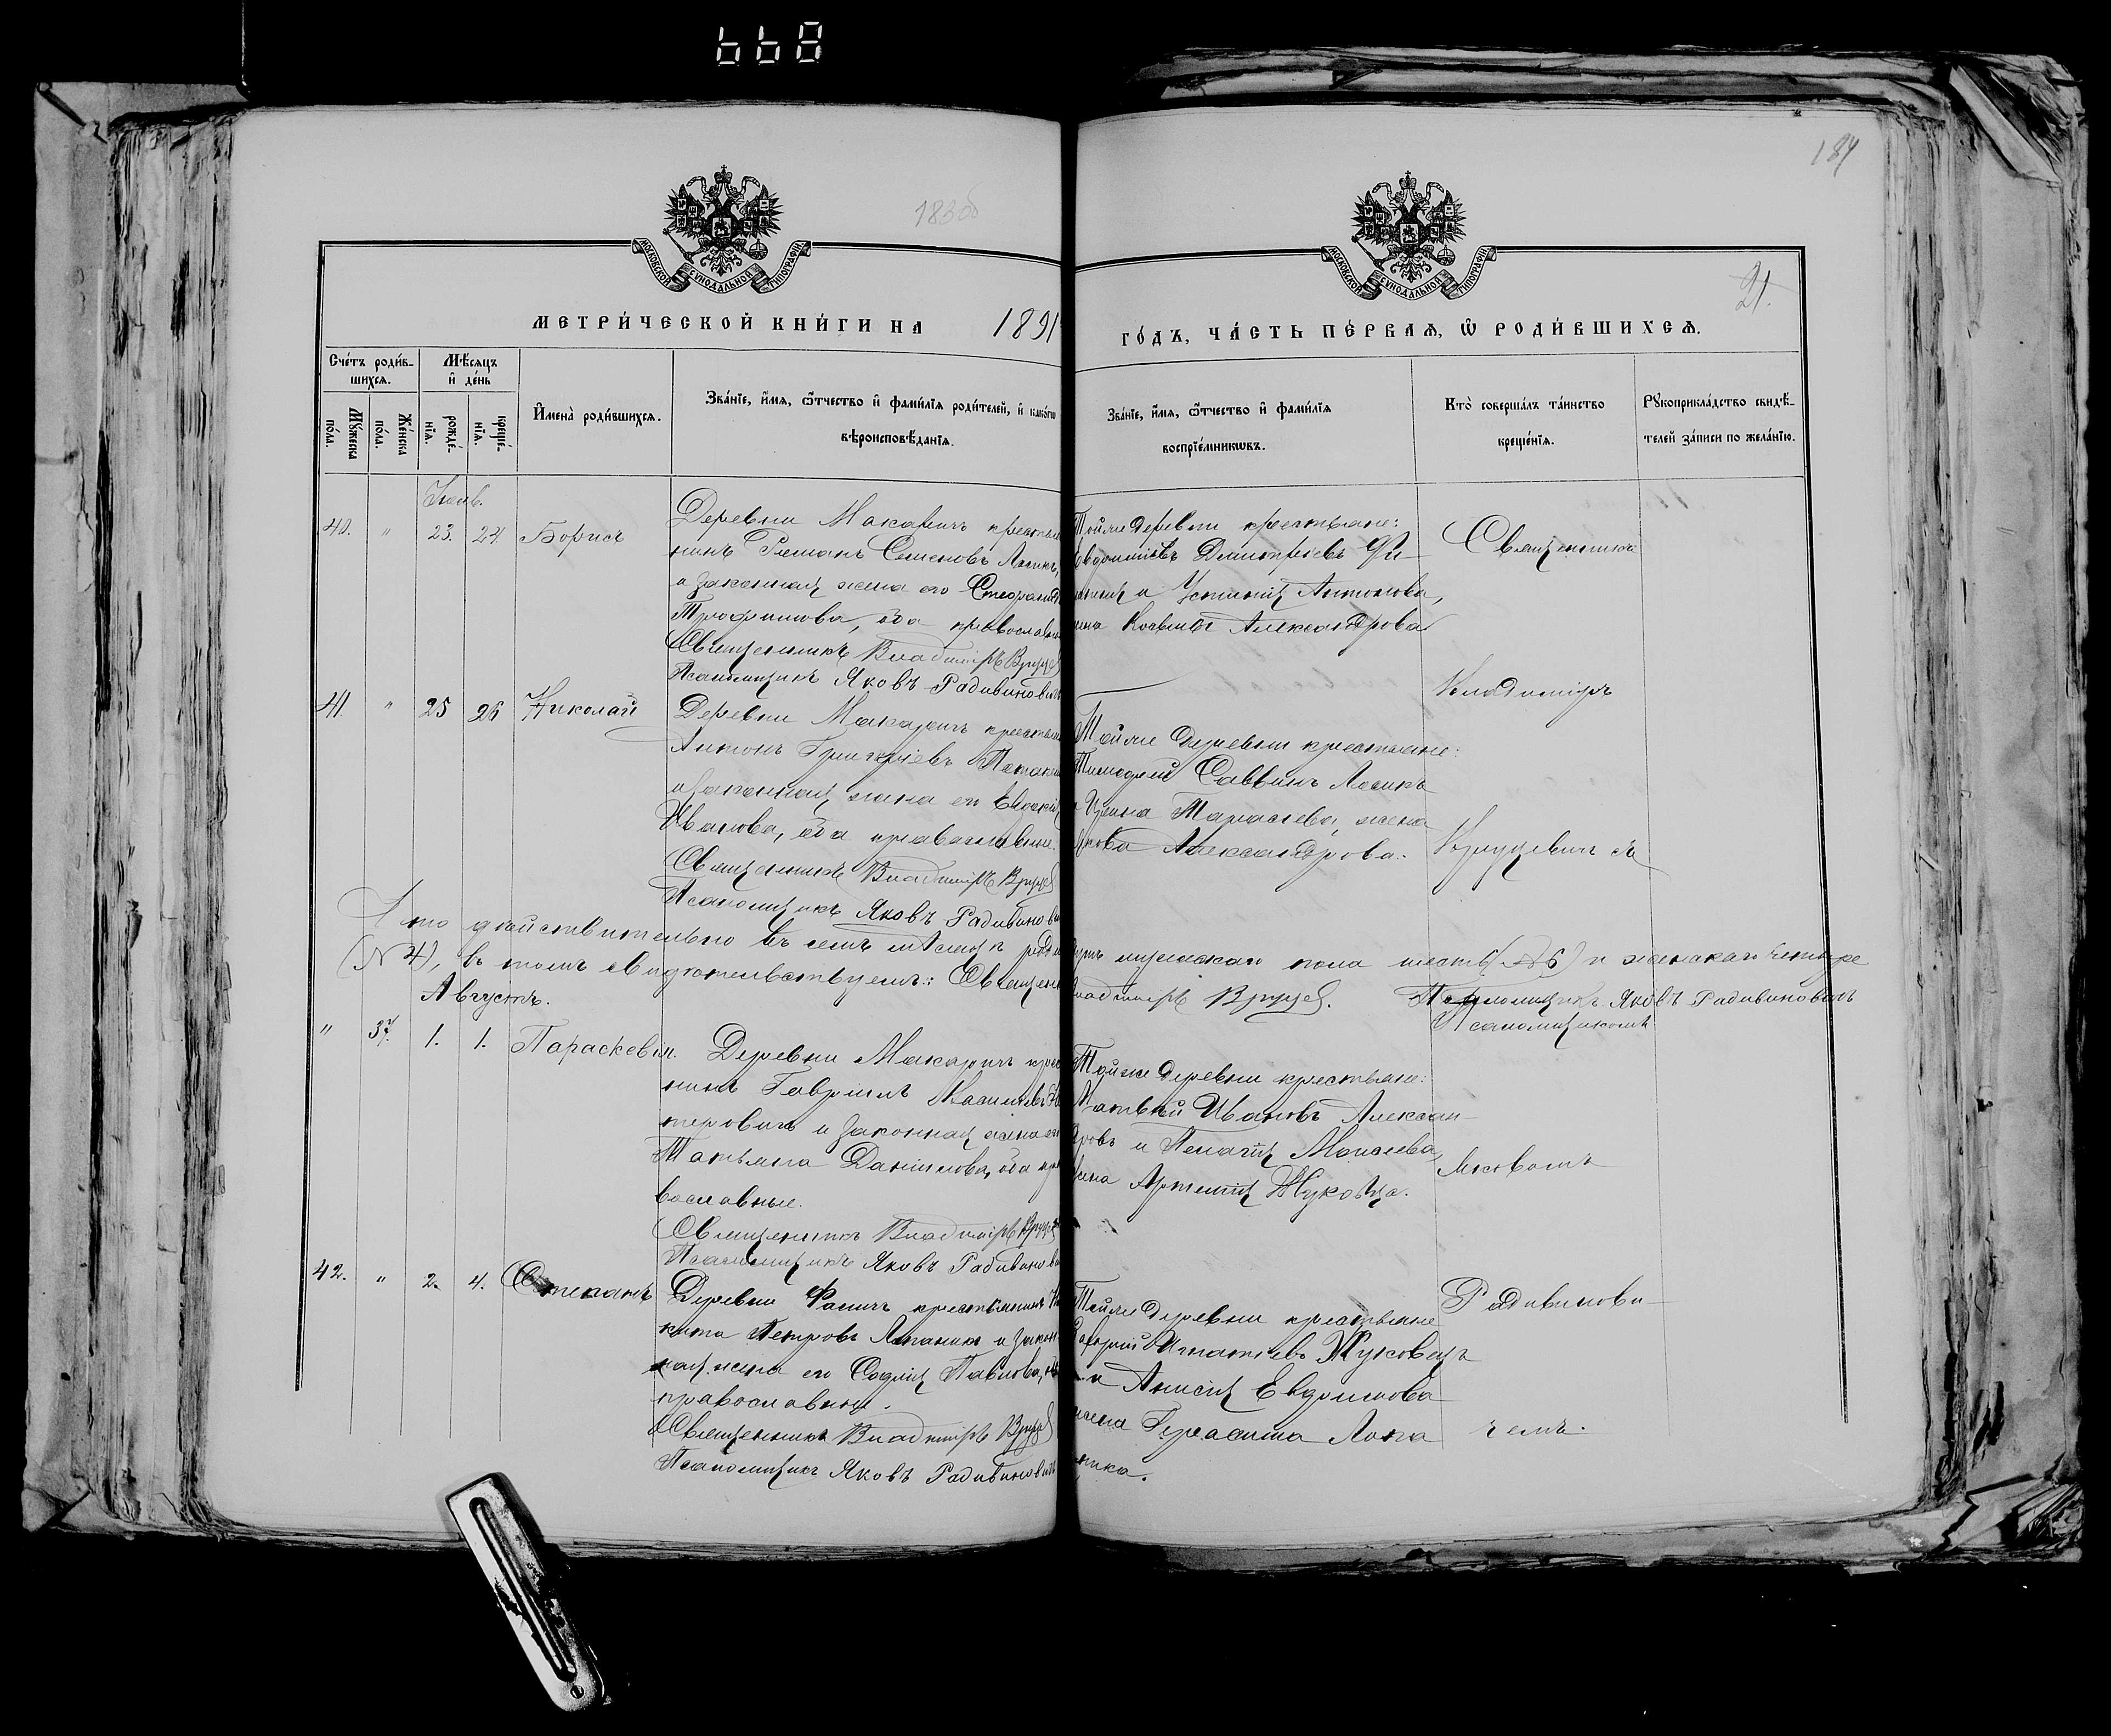 668
184
183об
21.
МОСКОВСКОЙ СѴНОДАЛЬНОЙ ТИПОГРАФІИ
МОСКОВСКОЙ СѴНОДАЛЬНОЙ ТИПОГРАФІИ
МЕТРИ́ЧЕСКОЙ КНИ́ГИ НА 1891
ГО́ДЪ, ЧА́СТЬ ПЕ́РВАЯ, Ѡ РОДИ́ВШИХСЯ.
Сче́тъ роди́в-
шихся.
Мѣсяцъ
и҆ де́нь
Мꙋжеска
по́ла.
Же́нска
по́ла.
рожде́-
нїя.
креще́-
нїя.
И҆мена̀ роди́вшихся.
Зва́нїе, и҆́мя, ѻ҆́тчество и҆ фами́лїя роди́телей, и҆ како́гѡ
вѣроисповѣ́данїя.
Зва́нїе, и҆́мя, ѻ҆́тчество и҆ фами́лїя
воспрїе́мникѡвъ.
Кто̀ соверша́лъ та́инство
креще́нїя.
Рꙋкоприкла́дство свидѣ́-
телей за́писи по жела́нїю.
40. " 23. 24 Борисъ
Деревни Макаричъ крестья
нинъ Романъ Семеновъ Лосикъ,
и законная жена его Стефанид
Трофимова, оба православн
Священникъ Владиміръ Вруцев
Псаломщикъ Яковъ Радивинович
Тойже деревни крестьяне:
Димитріевъ
и Устинія Антонова,
жена Косьмы Александрова
Священникъ
41. " 25 26 Николай
Деревни Макаричъ крестьян
Антонъ Григоріевъ
и законная жена его Евдокія
Иванова, оба православные.
Священникъ Владиміръ Вруцев
Псаломщикъ Яковъ Радивинови
Тойже деревни крестьяне:
Тимофей Саввинъ Лосикъ
и Ирина Тарасіева, жена
Якова Александрова.
Владиміръ
Вруцевичъ съ
А что дѣйствительно въ семъ мѣсяцѣ роди мужскаго пола шесть (№ 6) и женскаго четыре
(№ 4), въ томъ свидѣтельствуемъ: Священ Владиміръ Вруцев. Псаломщикъ Яковъ Радивиновичъ
Псаломщикомъ
Августъ.
" 37. 1. 1. Параскевія.
Деревни Макаричъ крес
нинъ Гавріилъ Васильевъ
теровичъ и законная жена ег
Татьяна Даніилова, оба пра
вославные.
Священникъ Владиміръ Вруцев
Псаломщикъ Яковъ Радивинови
Тойже деревни крестьяне:
Матвѣй Ивановъ Алексан-
дровъ и Пелагія Моисеева,
жена Артемія Жуковца.
Яковомъ
42. " 2. 4. Степанъ
Деревни Фаничъ крестьянинъ Ни
кита Петровъ и закон
ная жена его Софія Павлова, об
православные.
Священникъ Владиміръ Вруцев
Псаломщикъ Яковъ Радивинович
Тойже деревни крестьяне
Игнатіевъ Жуковецъ
и Анисія Евфимова
жена Герасима Лопа
тика.
Радивинови-
чемъ.